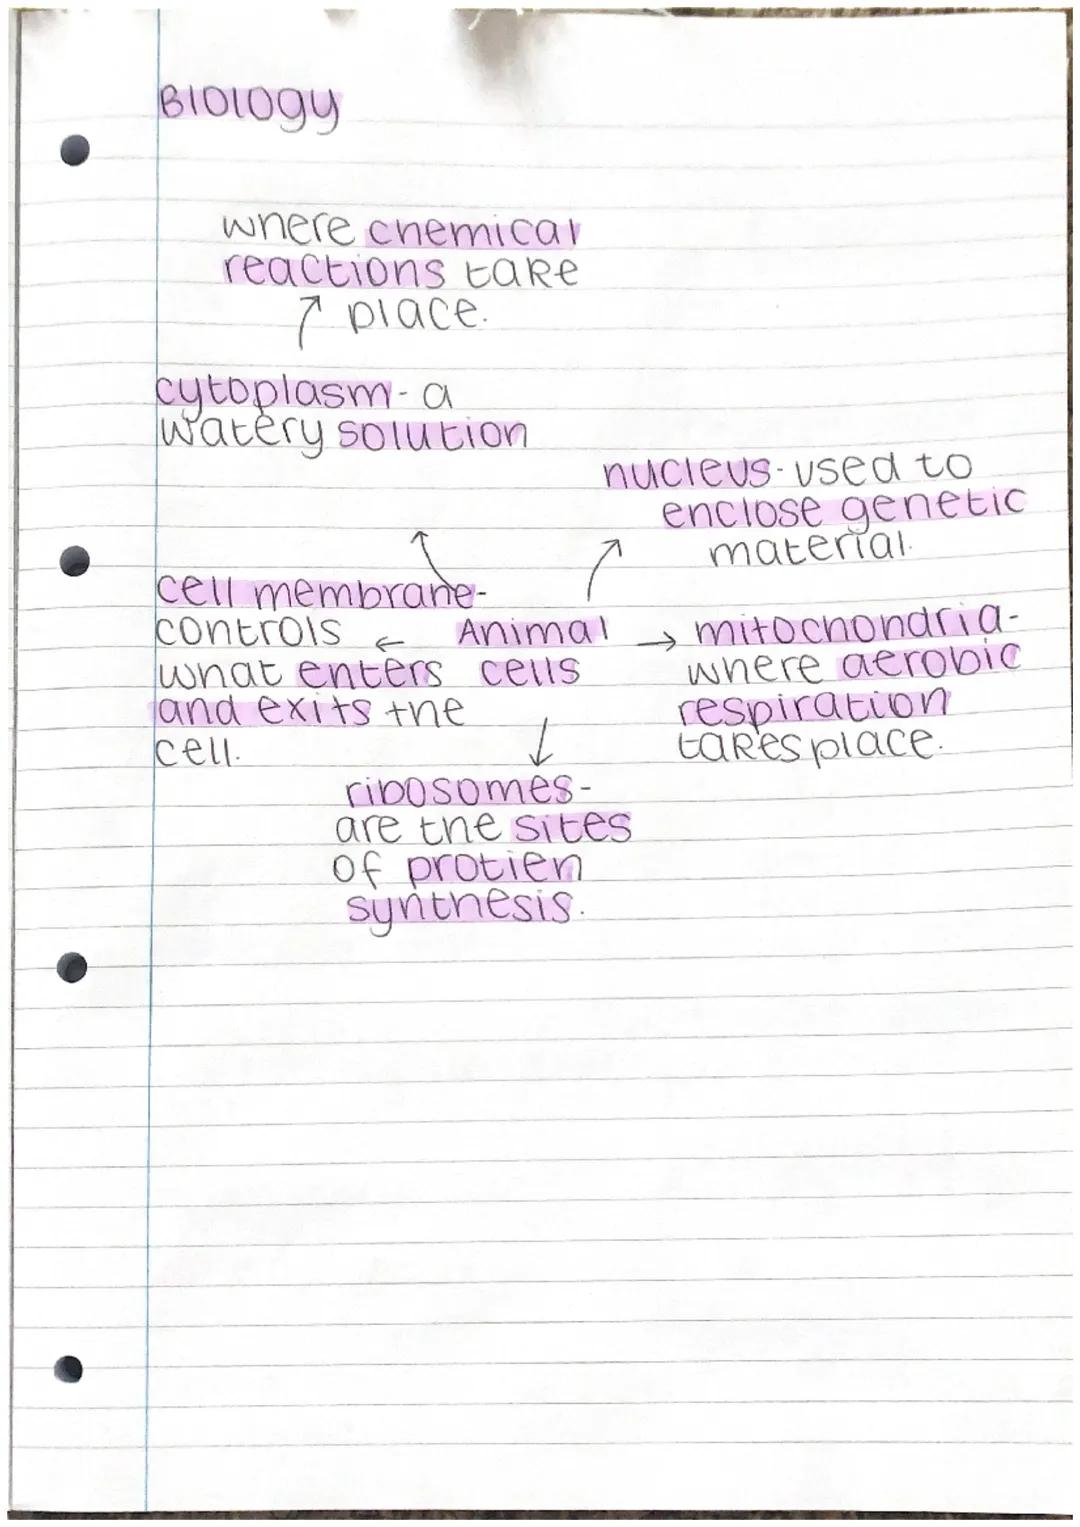 Biology
where chemical
reactions take
place.
cytoplasm - a
watery solution
nucleus - used to
enclose genetic
material.
cell membrane-
controls
what enters
and exits the
cell.
Animal
cells
mitochondria-
where aerobic
respiration
takes place.
ribosomes-
are the sites
of protien
synthesis.